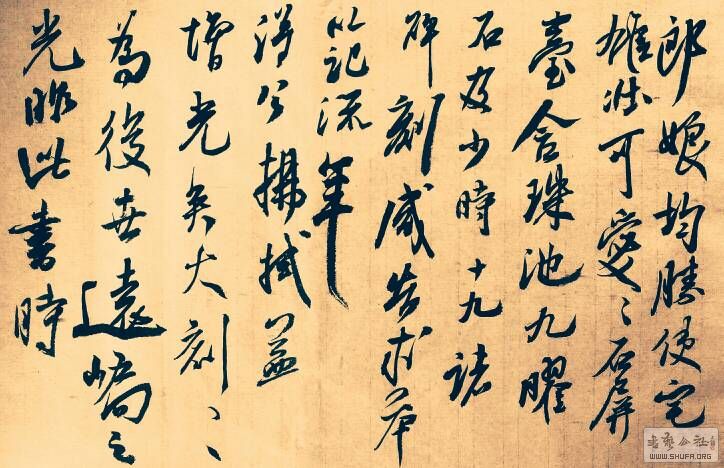 郎娘均勝使宅
雄壯可愛〻石屏
臺含珠池九曜
石及少時十九諸
碑刻咸求
以記流年
得公拂拭益
增光矣大刻〻
為後世遠嶠之
光昨此書時
WWW.SHUFA.ORG